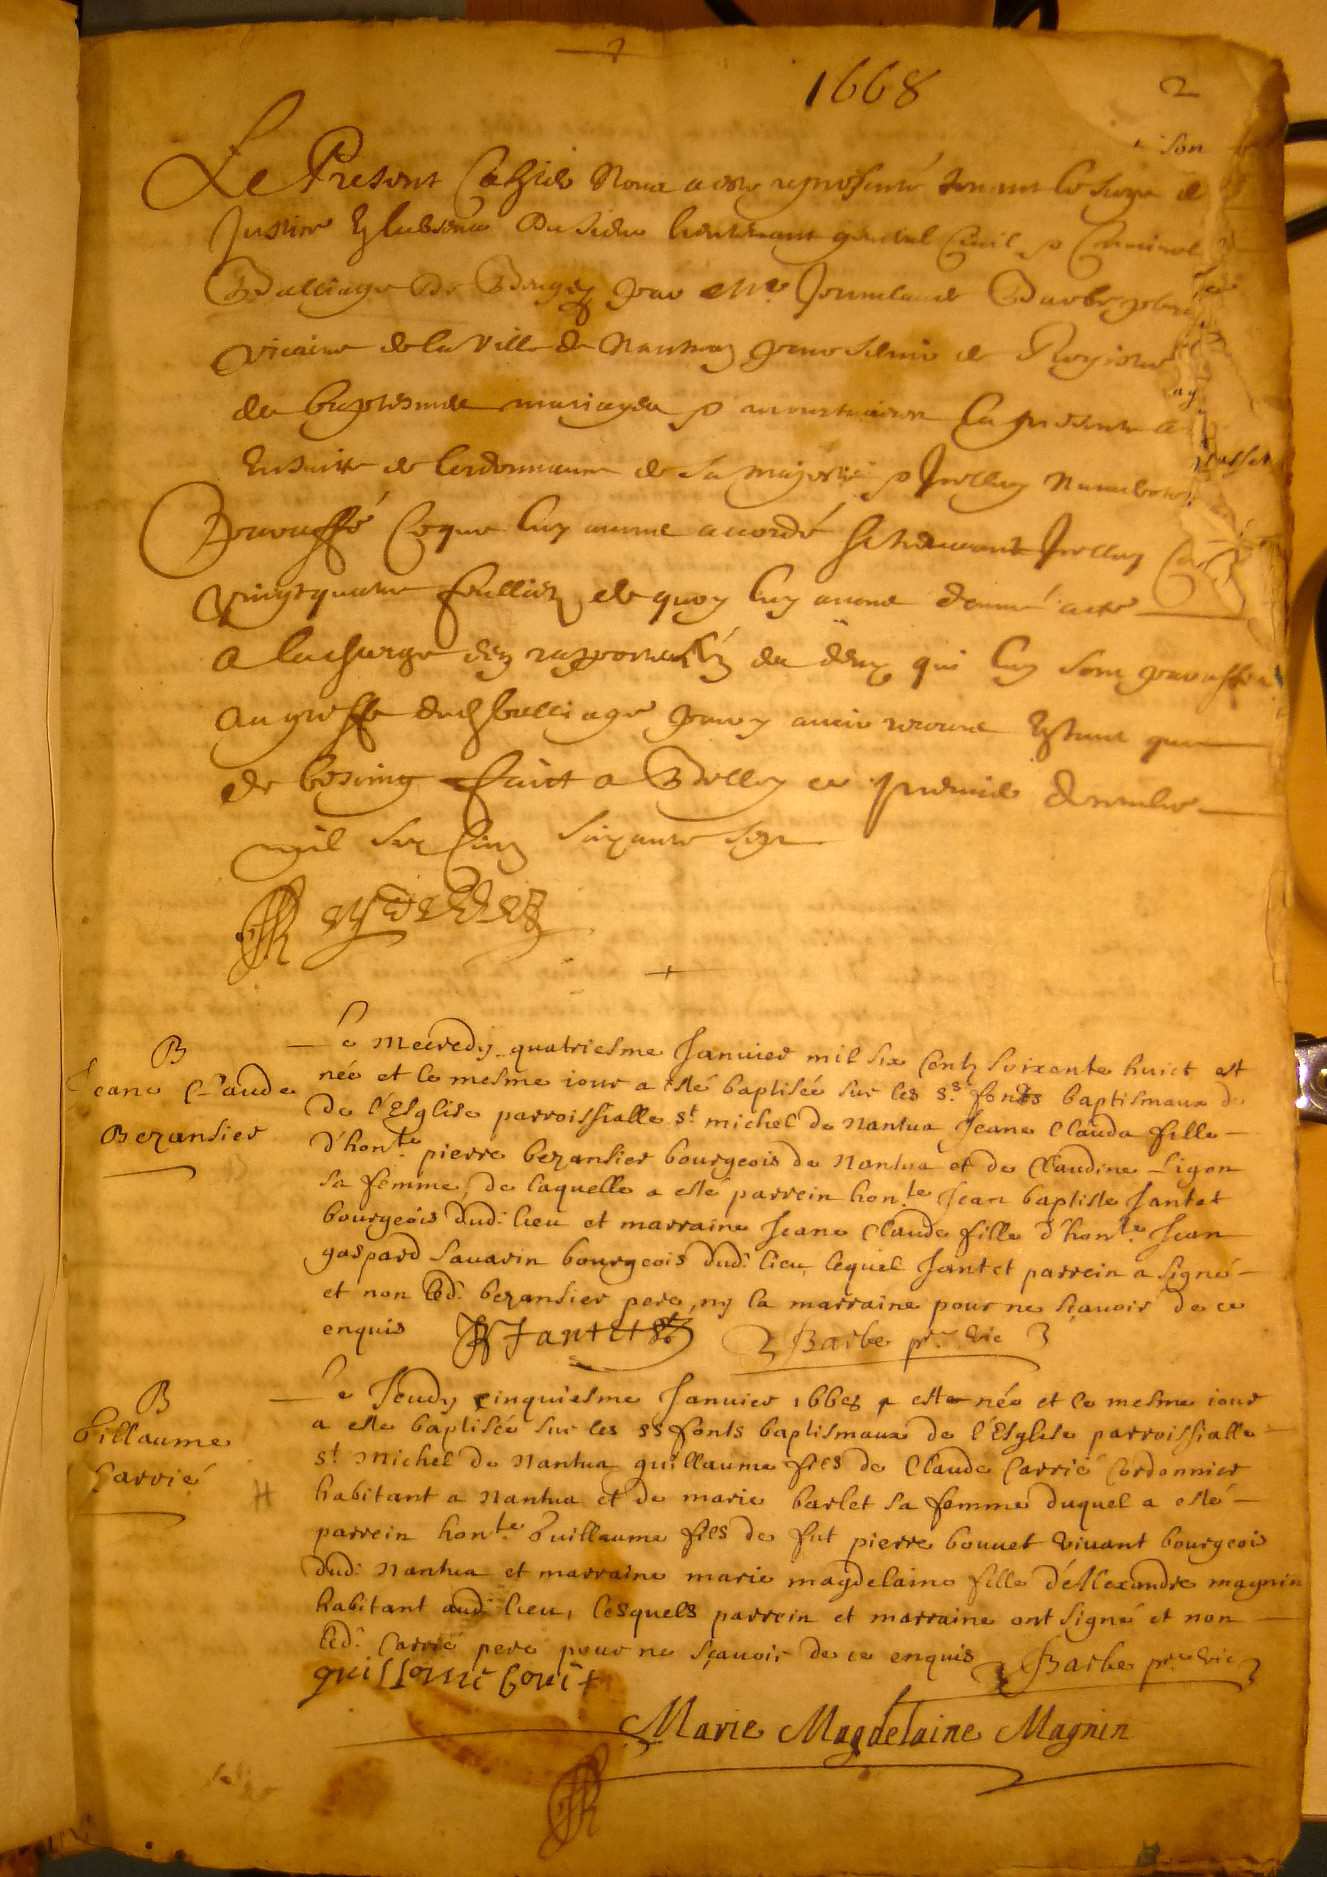 1668
2
son
Le Present Cahier Nous a este representé tenant le siege de
Justice Du sieur lieutenant general Civil & Criminel
Balliage De Beugey par Me Barbe prebre
vicaire de la Ville de Nantua pour servir de Registre
de baptesmes mariages & mortuaires la presente a
Ensuitte de lordonnance de sa majesté &
Paraffé Ce que luy avons accordé Contenant
vingt quatre feullietz de quoy luy avons donné acte
a la charge des rapporter de deux qui luy sont paraffés
au greffe dud balliage pour y avoir recours Estant
de besoing faict a Belley ce premier
mil six Cent soixante sept
B
Jeane Claude
Bezansier
Le Mecredy quatriesme Janvier mil six Centz soixante huict est
née et le mesme iour a esté baptisée sur les Ss fonts baptismaux de
de l'Esglise parroissialle St michel de Nantua Jeane Claude fille
d'honte pierre bezansier bourgeois de Nantua et de Claudine Ligon
sa femme, de laquelle a esté parrein honte Jean baptiste Jantet
bourgeois dud: lieu et marraine Jeane Claude fille d'honte Jean
gaspard Savarin bourgeois dud: lieu, lequel Jantet parrein a signé
et non led: bezansier pere, ny la marraine pour ne sçavoir de ce
enquis Jantet Barbe pre vic
B
Guillaume
Carrié
Le Jeudy cinquiesme Janvier 1668 este née et le mesme iour
a este baptisée sur les SS fonts baptismaux de l'Esglise parroissialle
St Michel de Nantua guillaume fils de Claude Carrié Cordonnier
habitant a Nantua et de marie barlet sa femme duquel a esté
parrein honte Guillaume fils de fut pierre bouvet vivant bourgeois
dud: Nantua et marraine marie magdelaine fille d'Alexandre magnin
habitant aud: lieu, lesquels parrein et marraine ont signé et non
led: Carrié pere pour ne sçavoir de ce enquis Barbe pre vic
Marie Magdelaine Magnin